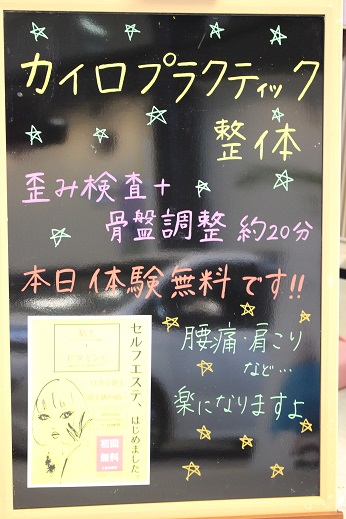 カイロプラクティック
整体
歪み検査+
骨盤調整 約20分
本日体験無料です!!
腰痛・肩こり
など…
楽になりますよ
セルフエステ、はじめました。
初回
無料